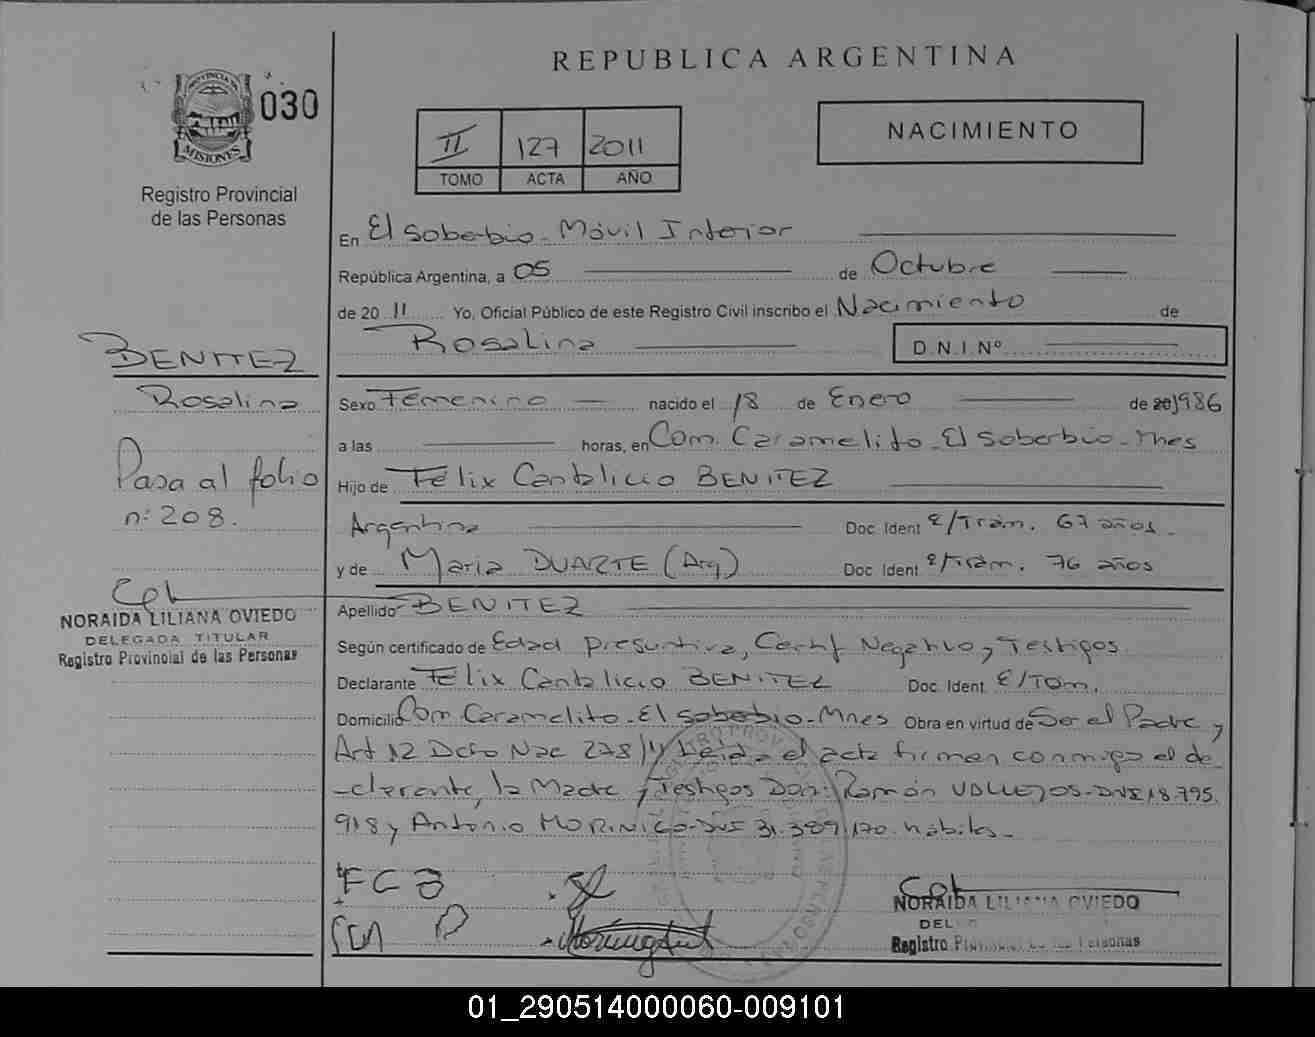 REPUBLICA ARGENTINA
PROVINCIA DE
MISIONES
030
Registro Provincial
de las Personas
II 127 2011
TOMO ACTA AÑO
NACIMIENTO
En El Soberbio - Móvil Interior
República Argentina, a 05 de Octubre
de 20 11 Yo, Oficial Público de este Registro Civil inscribo el Nacimiento de
Rosalina D.N.I.Nº
BENITEZ
Rosalina
Pasa al folio
nº 208.
NORAIDA LILIANA OVIEDO
DELEGADA TITULAR
Registro Provincial de las Personas
Sexo Femenino nacido el 18 de Enero de 20 1986
a las horas, en Com. Caramelito - El Soberbio - Mnes
Hijo de Félix Cantalicio BENITEZ
Argentina Doc. Ident E/Trám. 67 años.
y de Maria DUARTE (Arg) Doc. Ident E/Trám. 76 años
Apellido BENITEZ
Según certificado de Edad presuntiva, Certf Negativo y Testigos
Declarante Félix Cantalicio BENITEZ Doc. Ident. E/Trám.
Domicilio Com Caramelito - El Soberbio - Mnes Obra en virtud de Ser el Padre y
Art 12 Dcto Nac 278/11 Leída el acta firman conmigo el de
-clarante, la Madre y Testigos Don: Ramón VALLEJOS - DNI 18.795.
918 y Antonio MORINIGO - DNI 31.389.170. hábiles -
FCB
NORAIDA LILIANA OVIEDO
DEL
Registro Provincial de las Personas
01_290514000060-009101